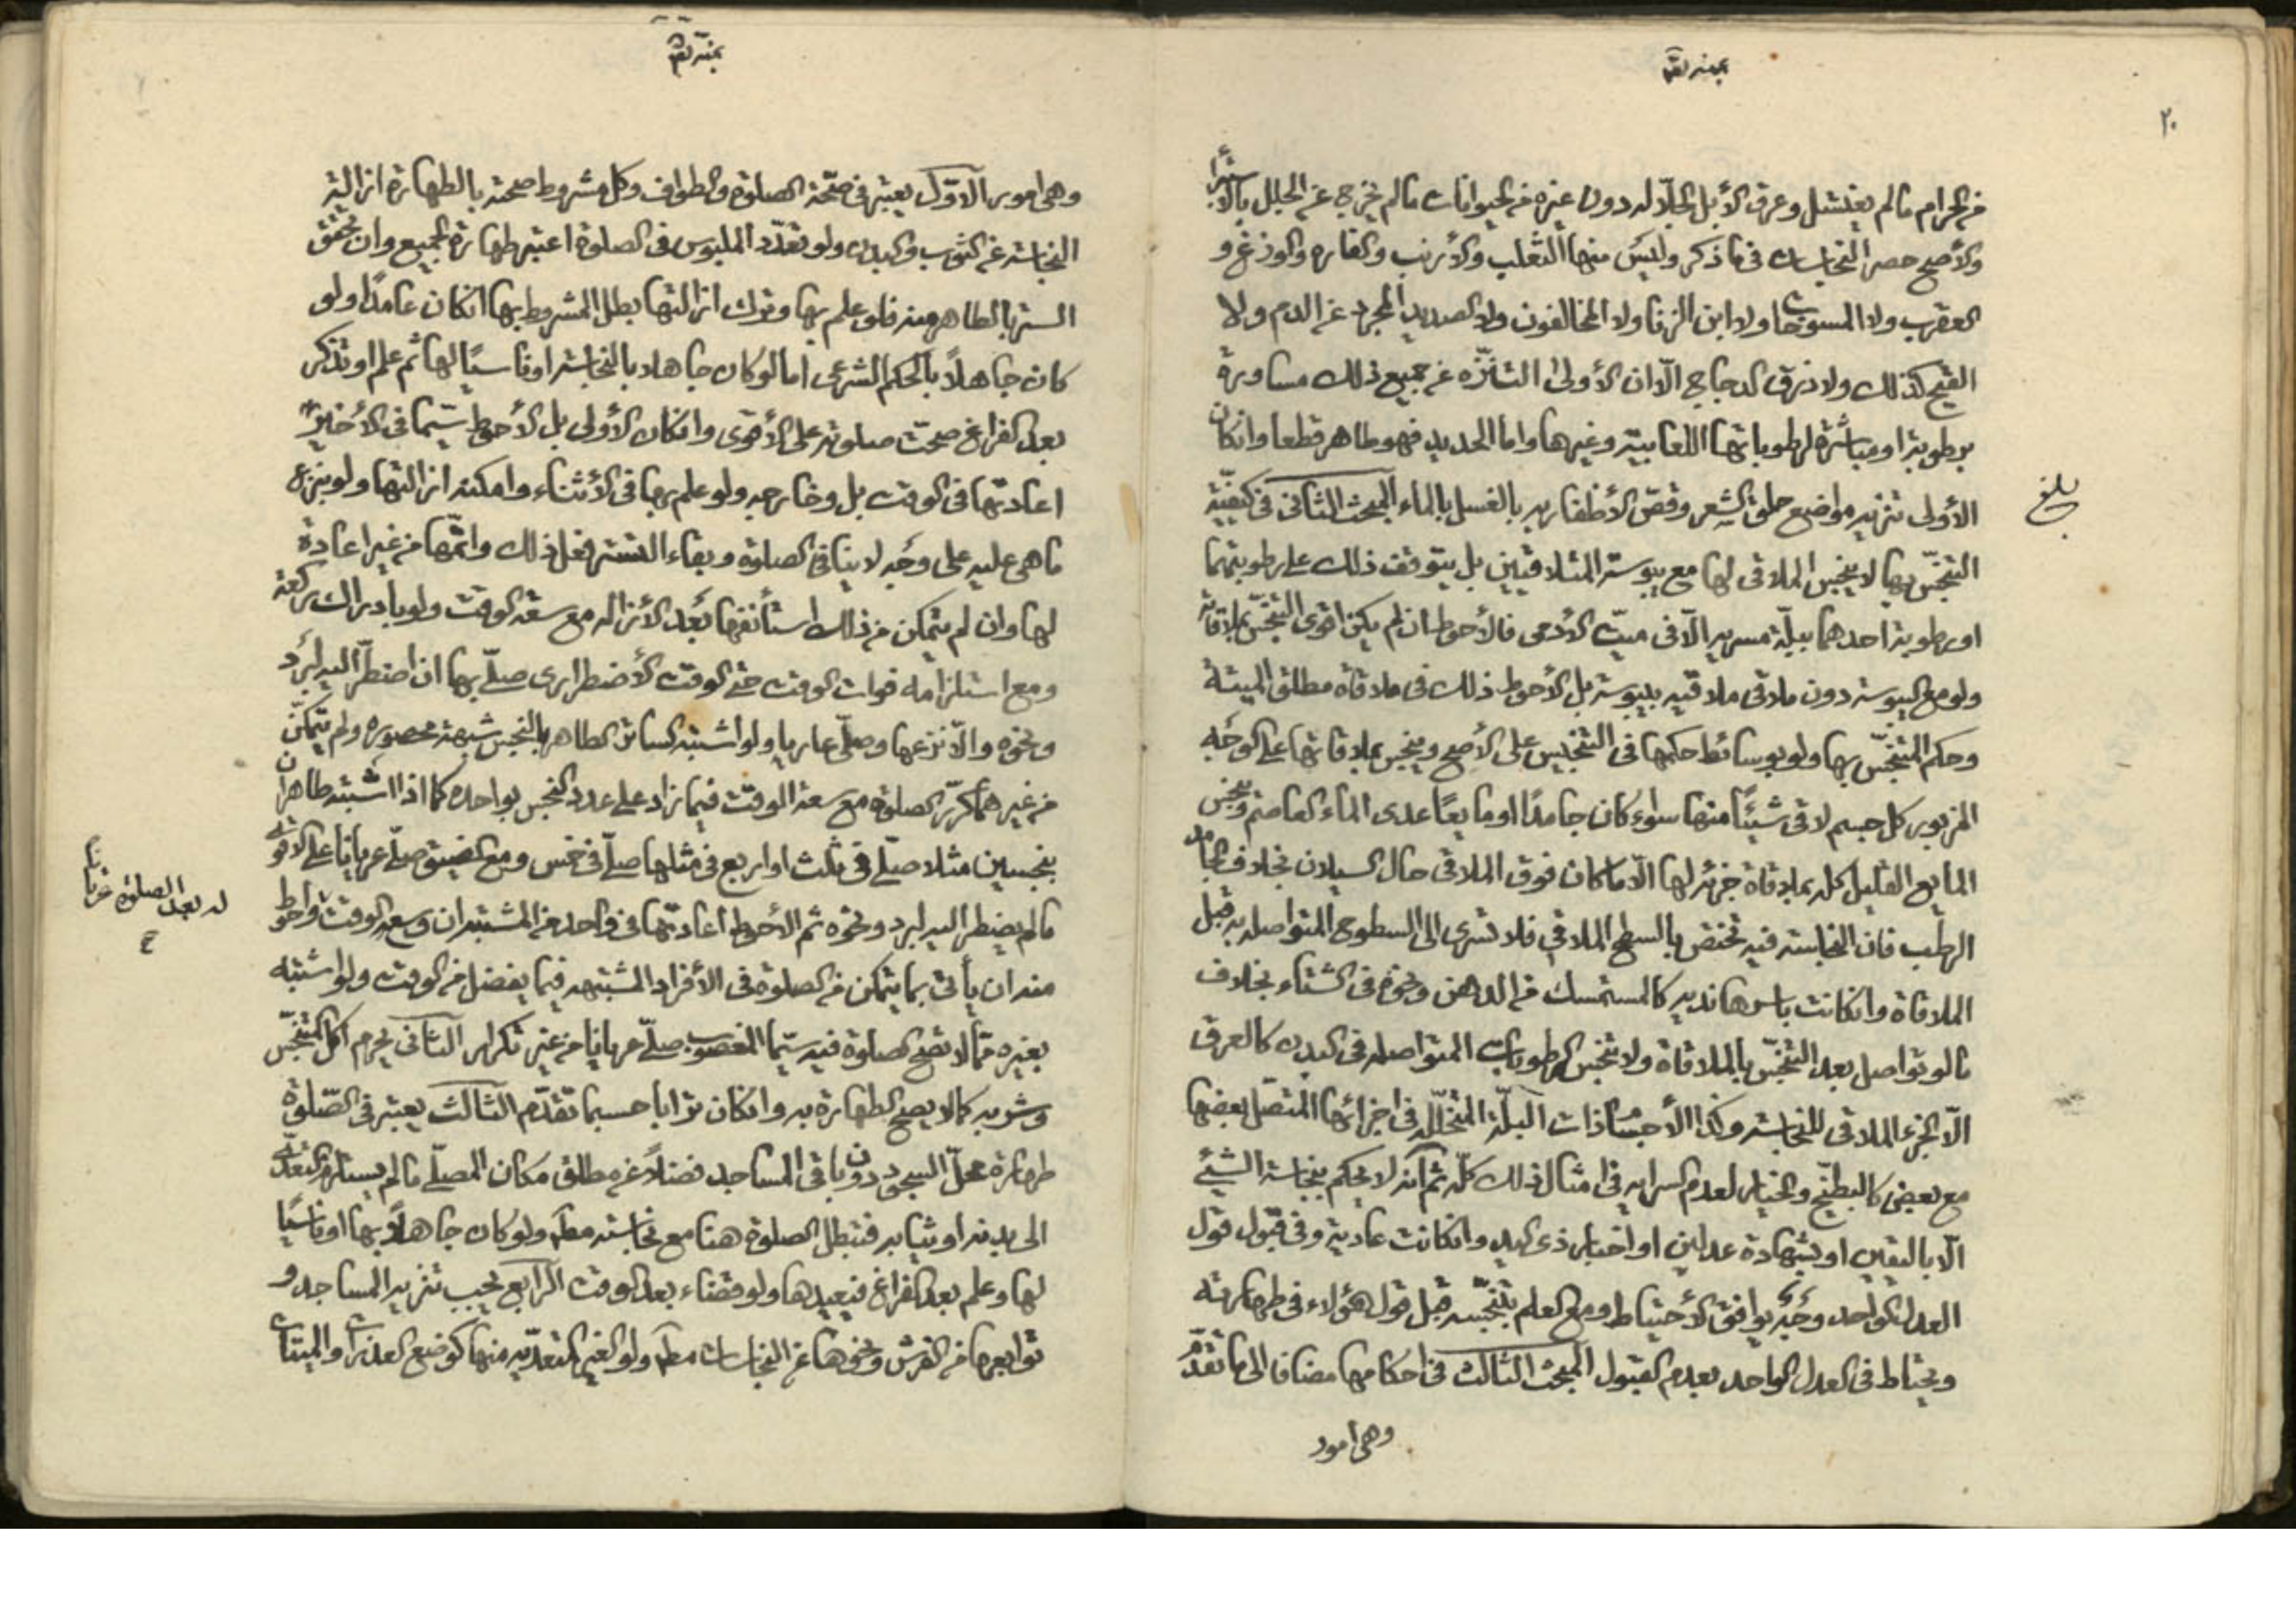 ٢٠
من الحرام ما لم يغتسل وعرق الأبل الجلّاله دون غيره من الحيوانات ما لم يخرج عن الجلل بالاستبراء
والأصح حصر النجاسات في ما ذكر وليس منها الثعلب والأرنب والفاره والوزغ و
العقرب ولا المسوخات ولا ابن الزنا ولا المخالفون ولا الصديد المجرد عن الدم ولا
القيح كذلك ولا ذرق الدجاج الّا ان الأولى التنزّه عن جميع ذلك مساورة
برطوبة او مباشرة لرطوباتها اللعابية وغيرها واما الحديد فهو طاهر قطعا وانكان
الأولى تنزيه مواضع حلق الشعر وقصّ الأظفار به بالغسل بالماء المبحث الثاني في كيفيّة
بلغ
التنجّس بها لا ينجس الملاقى لها مع يبوسة المتلاقيين بل يتوقف ذلك على رطوبتهما
او رطوبة احدهما ببلّة مسريه الّا في ميّت الآدمى فالأحوط ان لم يكن اقوى التنجّس بملاقاته
ولو مع اليبوسة دون ملاقى ملاقيه بيبوسة بل الأحوط ذلك في ملاقاة مطلق الميتة
وحكم المتنجّس بها ولو بوسائط حكمها في التنجيس على الأصح وينجس بملاقاتها على الوجه
المزبور كل جسم لاقى شيئًا منها سواء كان جامدًا او مايعًا عدى الماء العاصم وينجس
المايع القليل كله بملاقاة جزئه لها الّا ما كان فوق الملاقى حال السيلان بخلاف الجامد
الرطب فان النجاسة فيه تختص بالسطح الملاقي فلا تسرى الى السطوح المتواصله به قبل
الملاقاة وانكانت باسرها نديه كالمستمسك من الدهن ونحوه في الشتاء بخلاف
ما لو تواصل بعد التنجّس بالملاقاة ولا تنجس الرطوبات المتواصله في البدن كالعرق
الّا الجزء الملاقى للنجاسة وكذا الأجسام ذات البلّة المتخلّله في اجزائها المتصل بعضها
مع بعض كالبطيّخ والخيار لعدم السرايه في امثال ذلك كلّه ثم انّه لا يحكم بنجاسة الشئ
الّا باليقين او بشهادة عدلين او اخبار ذى اليد وانكانت عادية وفي قبول قول
العدل الواحد وجه يوافق الأحتياط ومع العلم بتنجّسه قبل قول هؤلاء في طهارته
ويحتاط في العدل الواحد بعدم القبول المبحث الثالث في احكامها مضافا الى ما تقدّم
وهى امور
وهى امور الاوّل يعتبر في صحّة الصلوة والطواف وكل مشروط صحته بالطهارة ازالة
النجاسة عن الثوب والبدن ولو تعدّد الملبوس في الصلوة اعتبر طهارة الجميع وان تحقق
الستر بالطاهر منه فلو علم بها وترك ازالتها بطل المشروط بها انكان عامدًا ولو
كان جاهلًا بالحكم الشرعى اما لو كان جاهلا بالنجاسة او ناسيًا لها ثم علم او تذكر
بعد الفراغ صحّت صلوته على الأقوى وانكان الأولى بل الأحوط سيّما في الأخير
اعادتها في الوقت بل وخارجه ولو علم بها في الأثناء وامكنه ازالتها ولو بنزع
ما هى عليه على وجه لا ينافي الصلوة وبقاء التستر فعل ذلك واتمّها من غير اعادة
لها وان لم يتمكن من ذلك استأنفها بعد الأزاله مع سعة الوقت ولو بادراك ركعة
ومع استلزامه فوات الوقت حتى الوقت الأضطرارى صلّى بها ان اضطرّ اليه لبرد
ونحوه والّا نزعها وصلّى عاريا ولو اشتبه الساتر الطاهر بالنجس شبهة محصوره ولم يتمكّن
من غيرهما كرّر الصلوة مع سعة الوقت فيما زاد على عدد النجس بواحده كما اذا اشتبه طاهران
بنجسين مثلا صلّى في ثلث او اربع في مثلها صلّى في خمس ومع الضيق صلّى عريانًا على الاقوى
ما لم يضطر اليه لبرد ونحوه ثم الأحوط اعادتها في واحد من المشتبه ان وسعه الوقت واحوط
له بعد الصلوة عريانًا
منه ان يأتى بما يتمكن من الصلوة في الأفراد المشتبهه فيما يفضل من الوقت ولو اشتبه
بغيره ممّا لا تصح الصلوة فيه سيّما المغصوب صلّى عريانا من غير تكرار الثانى يحرم اكل المتنجّس
وشربه كما لا يصح الطهارة به وانكان ترابا حسبما تقدّم الثالث يعتبر في الصّلوة
طهارة محلّ السجود دون باقى المساجد فضلًا عن مطلق مكان المصلّى ما لم يستلزم التعدّى
الى بدنه او ثيابه فتبطل الصلوة هنا مع نجاسته مطـ ولو كان جاهلًا بها او ناسيًا
لها وعلم بعد الفراغ فيعيدها ولو قضاء بعد الوقت الرابع يجب تنزيه المساجد و
توابعها من الفرش ونحوها عن النجاسات مطـ ولو الغير المتعدّيه منها كوضع العذرات والميتات